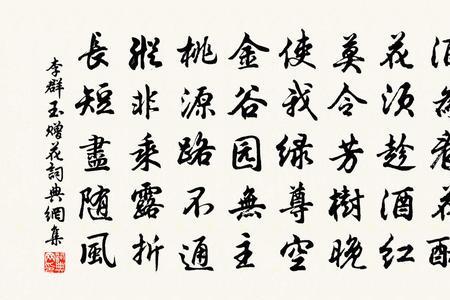 酒為看花
花须趁酒红
莫令芳樹晚
使我绿尊空
金谷园無主
桃源路不通
縱非乘露折
長短盡随風
李群玉赠花詞典網集